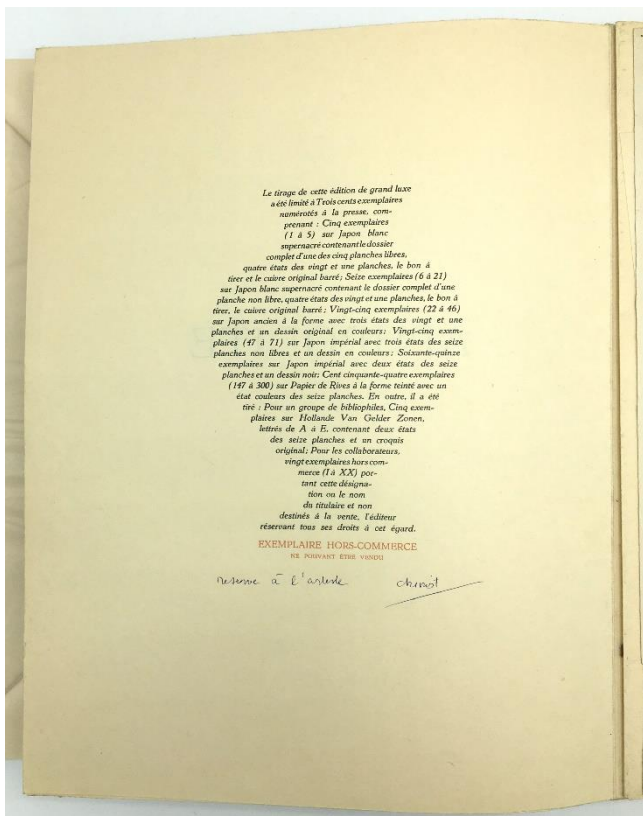 Le tirage de cette édition de grand luxe
a été limité à Trois cents exemplaires
numérotés à la presse, com-
prenant : Cinq exemplaires
(1 à 5) sur Japon blanc
supernacré contenant le dossier
complet d'une des cinq planches libres,
quatre états des vingt et une planches, le bon à
tirer et le cuivre original barré; Seize exemplaires (6 à 21)
sur Japon blanc supernacré contenant le dossier complet d'une
planche non libre, quatre états des vingt et une planches, le bon à
tirer, le cuivre original barré; Vingt-cinq exemplaires (22 à 46)
sur Japon ancien à la forme avec trois états des vingt et une
planches et un dessin original en couleurs; Vingt-cinq exem-
plaires (47 à 71) sur Japon impérial avec trois états des seize
planches non libres et un dessin en couleurs; Soixante-quinze
exemplaires sur Japon impérial avec deux états des seize
planches et un dessin noir; Cent cinquante-quatre exemplaires
(147 à 300) sur Papier de Rives à la forme teinté avec un
état couleurs des seize planches. En outre, il a été
tiré : Pour un groupe de bibliophiles, Cinq exem-
plaires sur Hollande Van Gelder Zonen,
lettrés de A à E, contenant deux états
des seize planches et un croquis
original; Pour les collaborateurs,
vingt exemplaires hors com-
merce (I à XX) por-
tant cette désigna-
tion ou le nom
du titulaire et non
destinés à la vente, l'éditeur
réservant tous ses droits à cet égard.
EXEMPLAIRE HORS-COMMERCE
NE POUVANT ÊTRE VENDU
reserve à l'artiste